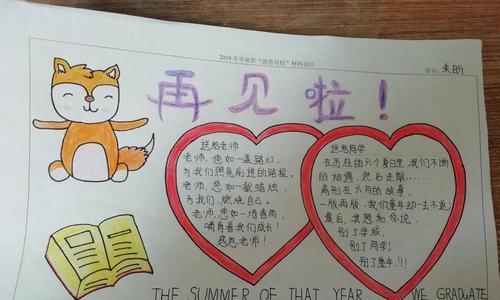 2019年毕业班“感恩母校”材料设计
姓名：朱昐
再见啦！
送给老师
老师，您如一盏路灯，
为我们照亮前进的路程。
老师，您如一截蜡烛，
为我们，燃烧自己。
老师，您如一场春雨，
哺育着我们成长！
感恩老师！
送给同学
在历经的六个夏日里，我们不断
的相遇，然后走散……
离别在六月的故事，
一版再版，我们童年却一去不返！
最后，我想和你说，
别了学校，
别了同学！
别了童年！！！
THE SUMMER OF THAT YEAR WE GRADUATE